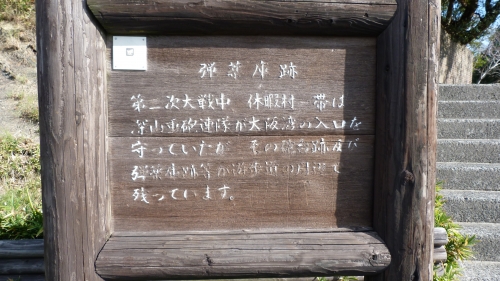 弾薬庫跡
第二次大戦中 休暇村一帯は
深山重砲連隊が大阪湾の入口を
守っていたが その砲台跡及び
弾薬庫跡等が遊歩道の周辺で
残っています。